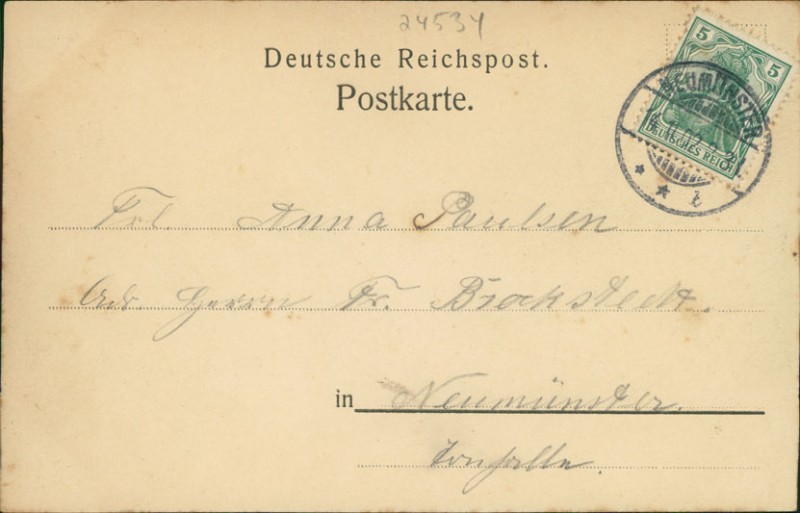 24534
Deutsche Reichspost.
Postkarte.
5 5
DEUTSCHES REICH
NEUMÜNSTER
Frl. Anna Paulsen
Adr. Herrn Fr. Brockstedt.
in Neumünster.
Tonhalle.